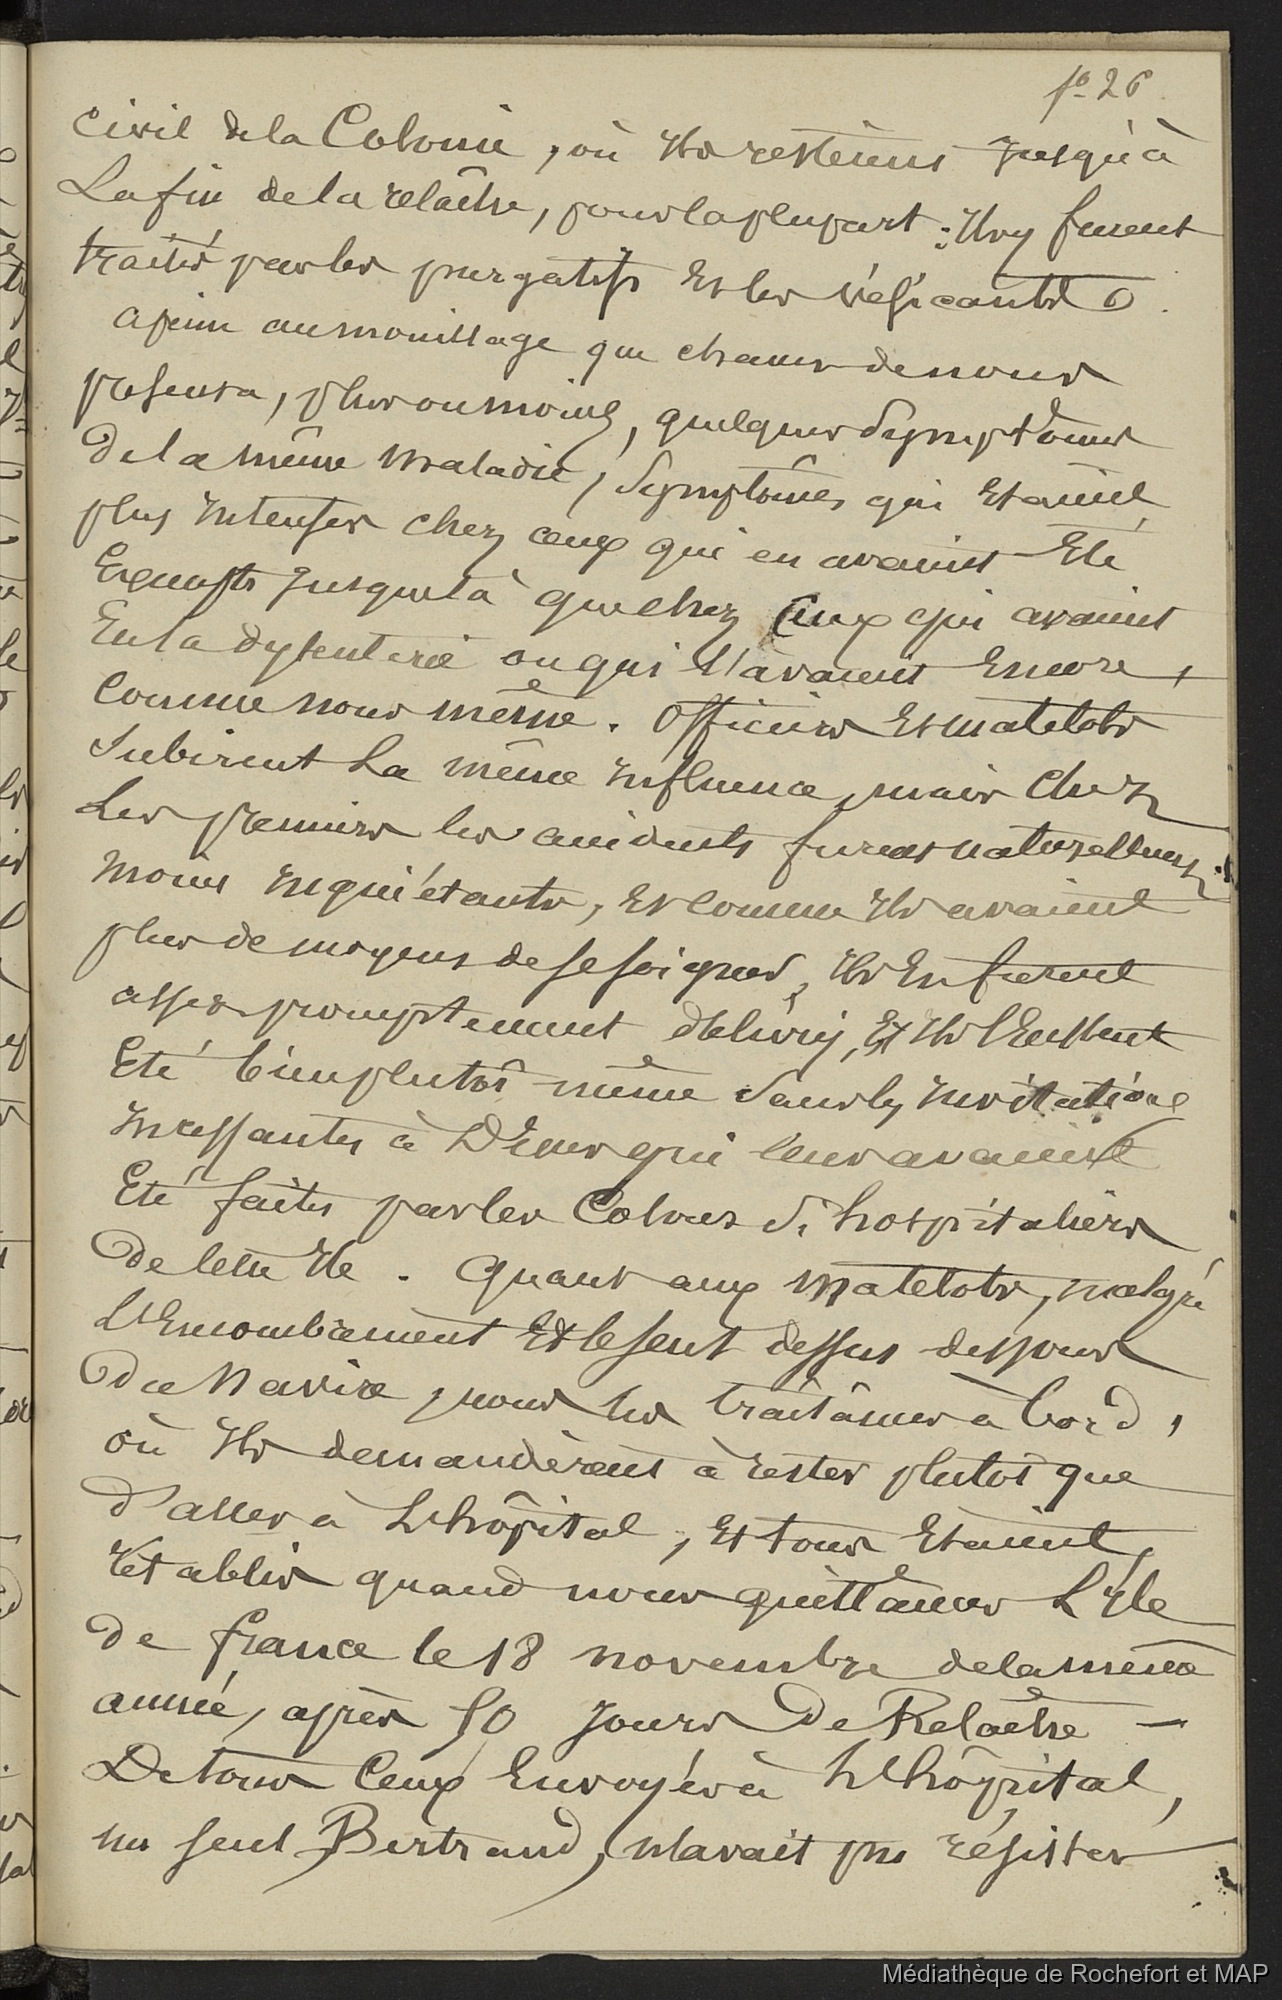 fo 26
civil de la Colonie, où ils restèrent jusqu'à
La fin de la relâche, pour la plupart ; ils y furent
traités par les purgatifs et les vésicants
a peine au mouillage que chacun de nous
présenta, plus ou moins, quelques symptômes
de la même maladie, symptômes qui étaient
plus intenses chez ceux qui en avaient été
Exempts jusque là que chez ceux qui avaient
Eu la dysenterie ou qui l'avaient encore,
comme nous même. Officiers et matelots
subirent la même influence, mais chez
Les premiers les accidents furent naturellement
moins inquiétants, et comme ils avaient
plus de moyens de se soigner, ils en furent
assez promptement délivrés, et ils l'eussent
été bien plutôt même sans les invitations
incessantes à Dîner qui leur avaient
Eté faites par les Colons si hospitaliers
de cette île. Quant aux matelots, malgré
L'Encombrement et le sens dessus dessous
du Navire, nous les traitâmes à bord,
où ils demandèrent à rester plutôt que
d'aller à L'hôpital, et tous étaient
rétablis quand nous quittâmes L'île
de france le 18 novembre de la même
année, après 50 jours de Relâche —
De tous Ceux Envoyés à L'hôpital,
un seul, Bertrand, n'avait pu résister
Médiathèque de Rochefort et MAP